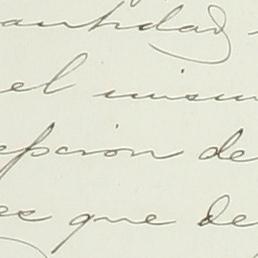 antidad
el mism
epcion de
es que de